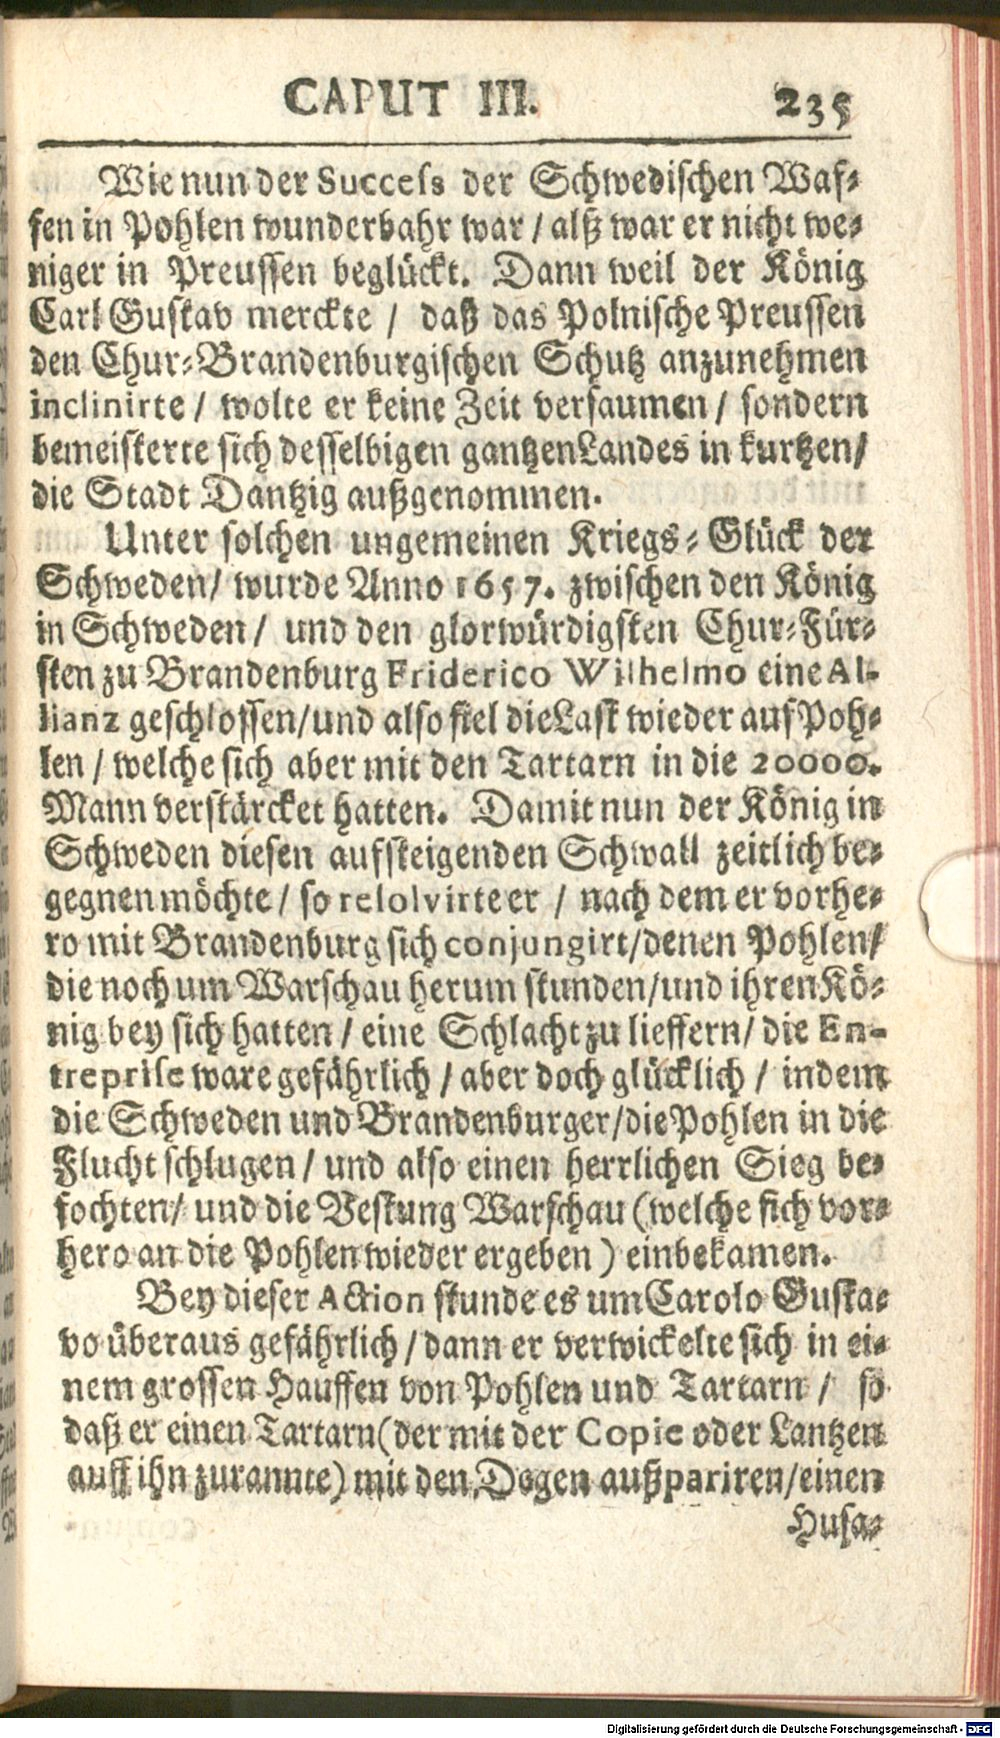 CAPUT III. 235
Wie nun der Success der Schwedischen Waf-
fen in Pohlen wunderbahr war / alß war er nicht we-
niger in Preussen beglückt. Dann weil der König
Carl Gustav merckte / daß das Polnische Preussen
den Chur-Brandenburgischen Schutz anzunehmen
inclinirte / wolte er keine Zeit versaumen / sondern
bemeisterte sich desselbigen gantzen Landes in kurtzen/
die Stadt Dantzig außgenommen.
Unter solchen ungemeinen Kriegs-Glück der
Schweden/ wurde Anno 1657. zwischen den König
in Schweden / und den glorwürdigsten Chur-Für-
sten zu Brandenburg Friderico Wilhelmo eine Al-
lianz geschlossen/und also fiel die Last wieder auf Poh-
len / welche sich aber mit den Tartarn in die 20000.
Mann verstärcket hatten. Damit nun der König in
Schweden diesen aufsteigenden Schwall zeitlich be-
gegnen möchte / so resolvirte er / nach dem er vorhe-
ro mit Brandenburg sich conjungirt/denen Pohlen/
die noch um Warschau herum stunden/und ihren Kö-
nig bey sich hatten / eine Schlacht zu lieffern/ die En-
treprise ware gefährlich / aber doch glücklich / indem
die Schweden und Brandenburger/die Pohlen in die
Flucht schlugen / und also einen herrlichen Sieg be-
fochten/ und die Vestung Warschau (welche sich vor-
hero an die Pohlen wieder ergeben) einbekamen.
Bey dieser Action stunde es um Carolo Gusta-
vo überaus gefährlich / dann er verwickelte sich in ei-
nem grossen Hauffen von Pohlen und Tartarn / so
daß er einen Tartarn (der mit der Copie oder Lantzen
auff ihn zurannte) mit den Degen außpariren/einen
Husa-
Digitalisierung gefördert durch die Deutsche Forschungsgemeinschaft - DFG